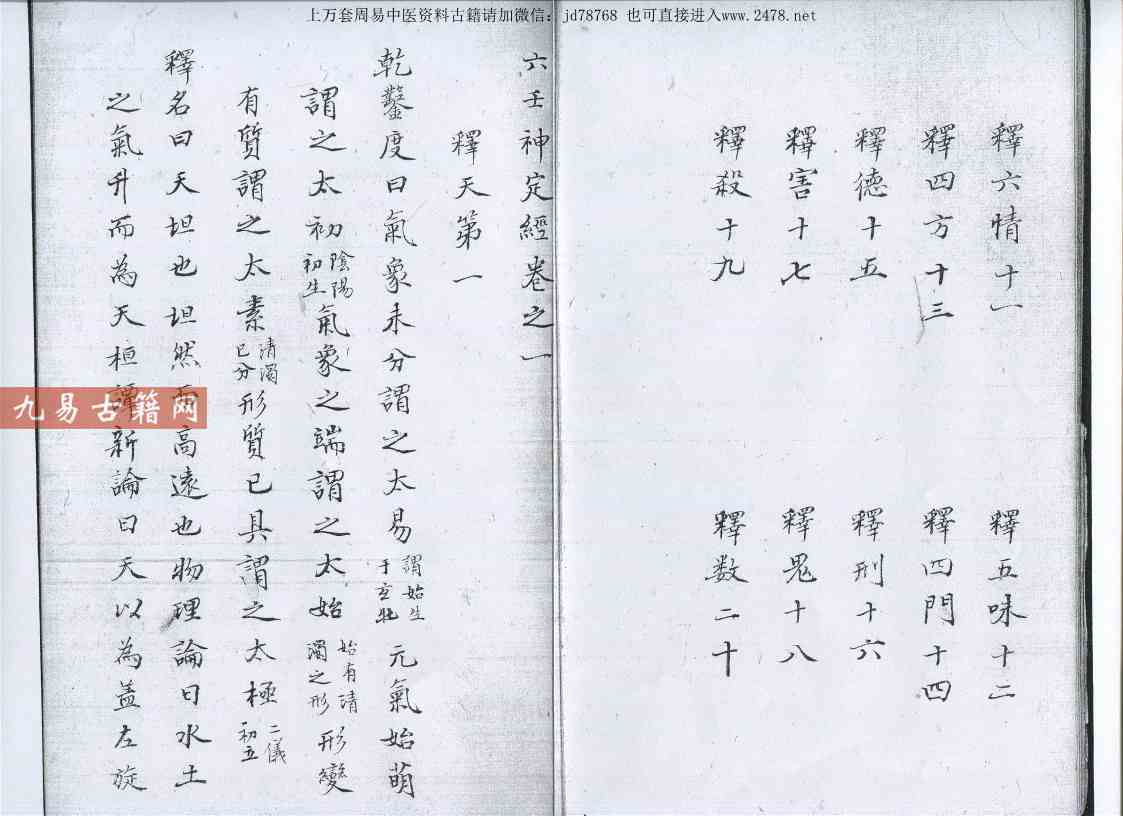 上万套周易中医资料古籍请加微信：jd78768 也可直接进入www.2478.net
釋六情十一 釋五味十二
釋四方十三 釋四門十四
釋德十五 釋刑十六
釋害十七 釋鬼十八
釋殺十九 釋数二十
六壬神定經卷之一
釋天第一
乾鑿度曰氣象未分謂之太易 謂始生于玄北 元氣始萌
謂之太初 陰陽初生 氣象之端謂之太始 始有清濁之形 形變
有質謂之太素 清濁已分 形質已具謂之太極 二儀初立
釋名曰天坦也坦然而高遠也物理論曰水土
之氣升而為天桓譚新論曰天以為盖左旋
九易古籍网